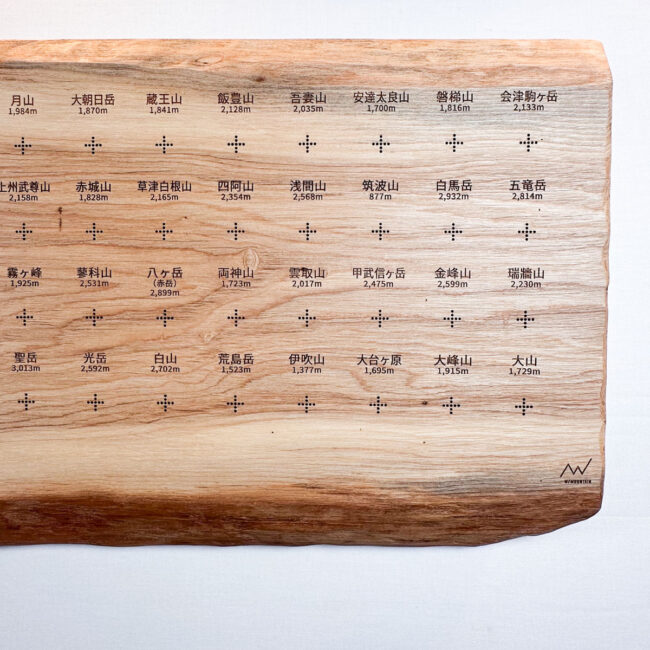 月山 大朝日岳 蔵王山 飯豊山 吾妻山 安達太良山 磐梯山 会津駒ヶ岳
1,984m 1,870m 1,841m 2,128m 2,035m 1,700m 1,816m 2,133m
上州武尊山 赤城山 草津白根山 四阿山 浅間山 筑波山 白馬岳 五竜岳
2,158m 1,828m 2,165m 2,354m 2,568m 877m 2,932m 2,814m
霧ヶ峰 蓼科山 八ヶ岳 両神山 雲取山 甲武信ヶ岳 金峰山 瑞牆山
1,925m 2,531m (赤岳) 1,723m 2,017m 2,475m 2,599m 2,230m
2,899m
聖岳 光岳 白山 荒島岳 伊吹山 大台ヶ原 大峰山 大山
3,013m 2,592m 2,702m 1,523m 1,377m 1,695m 1,915m 1,729m